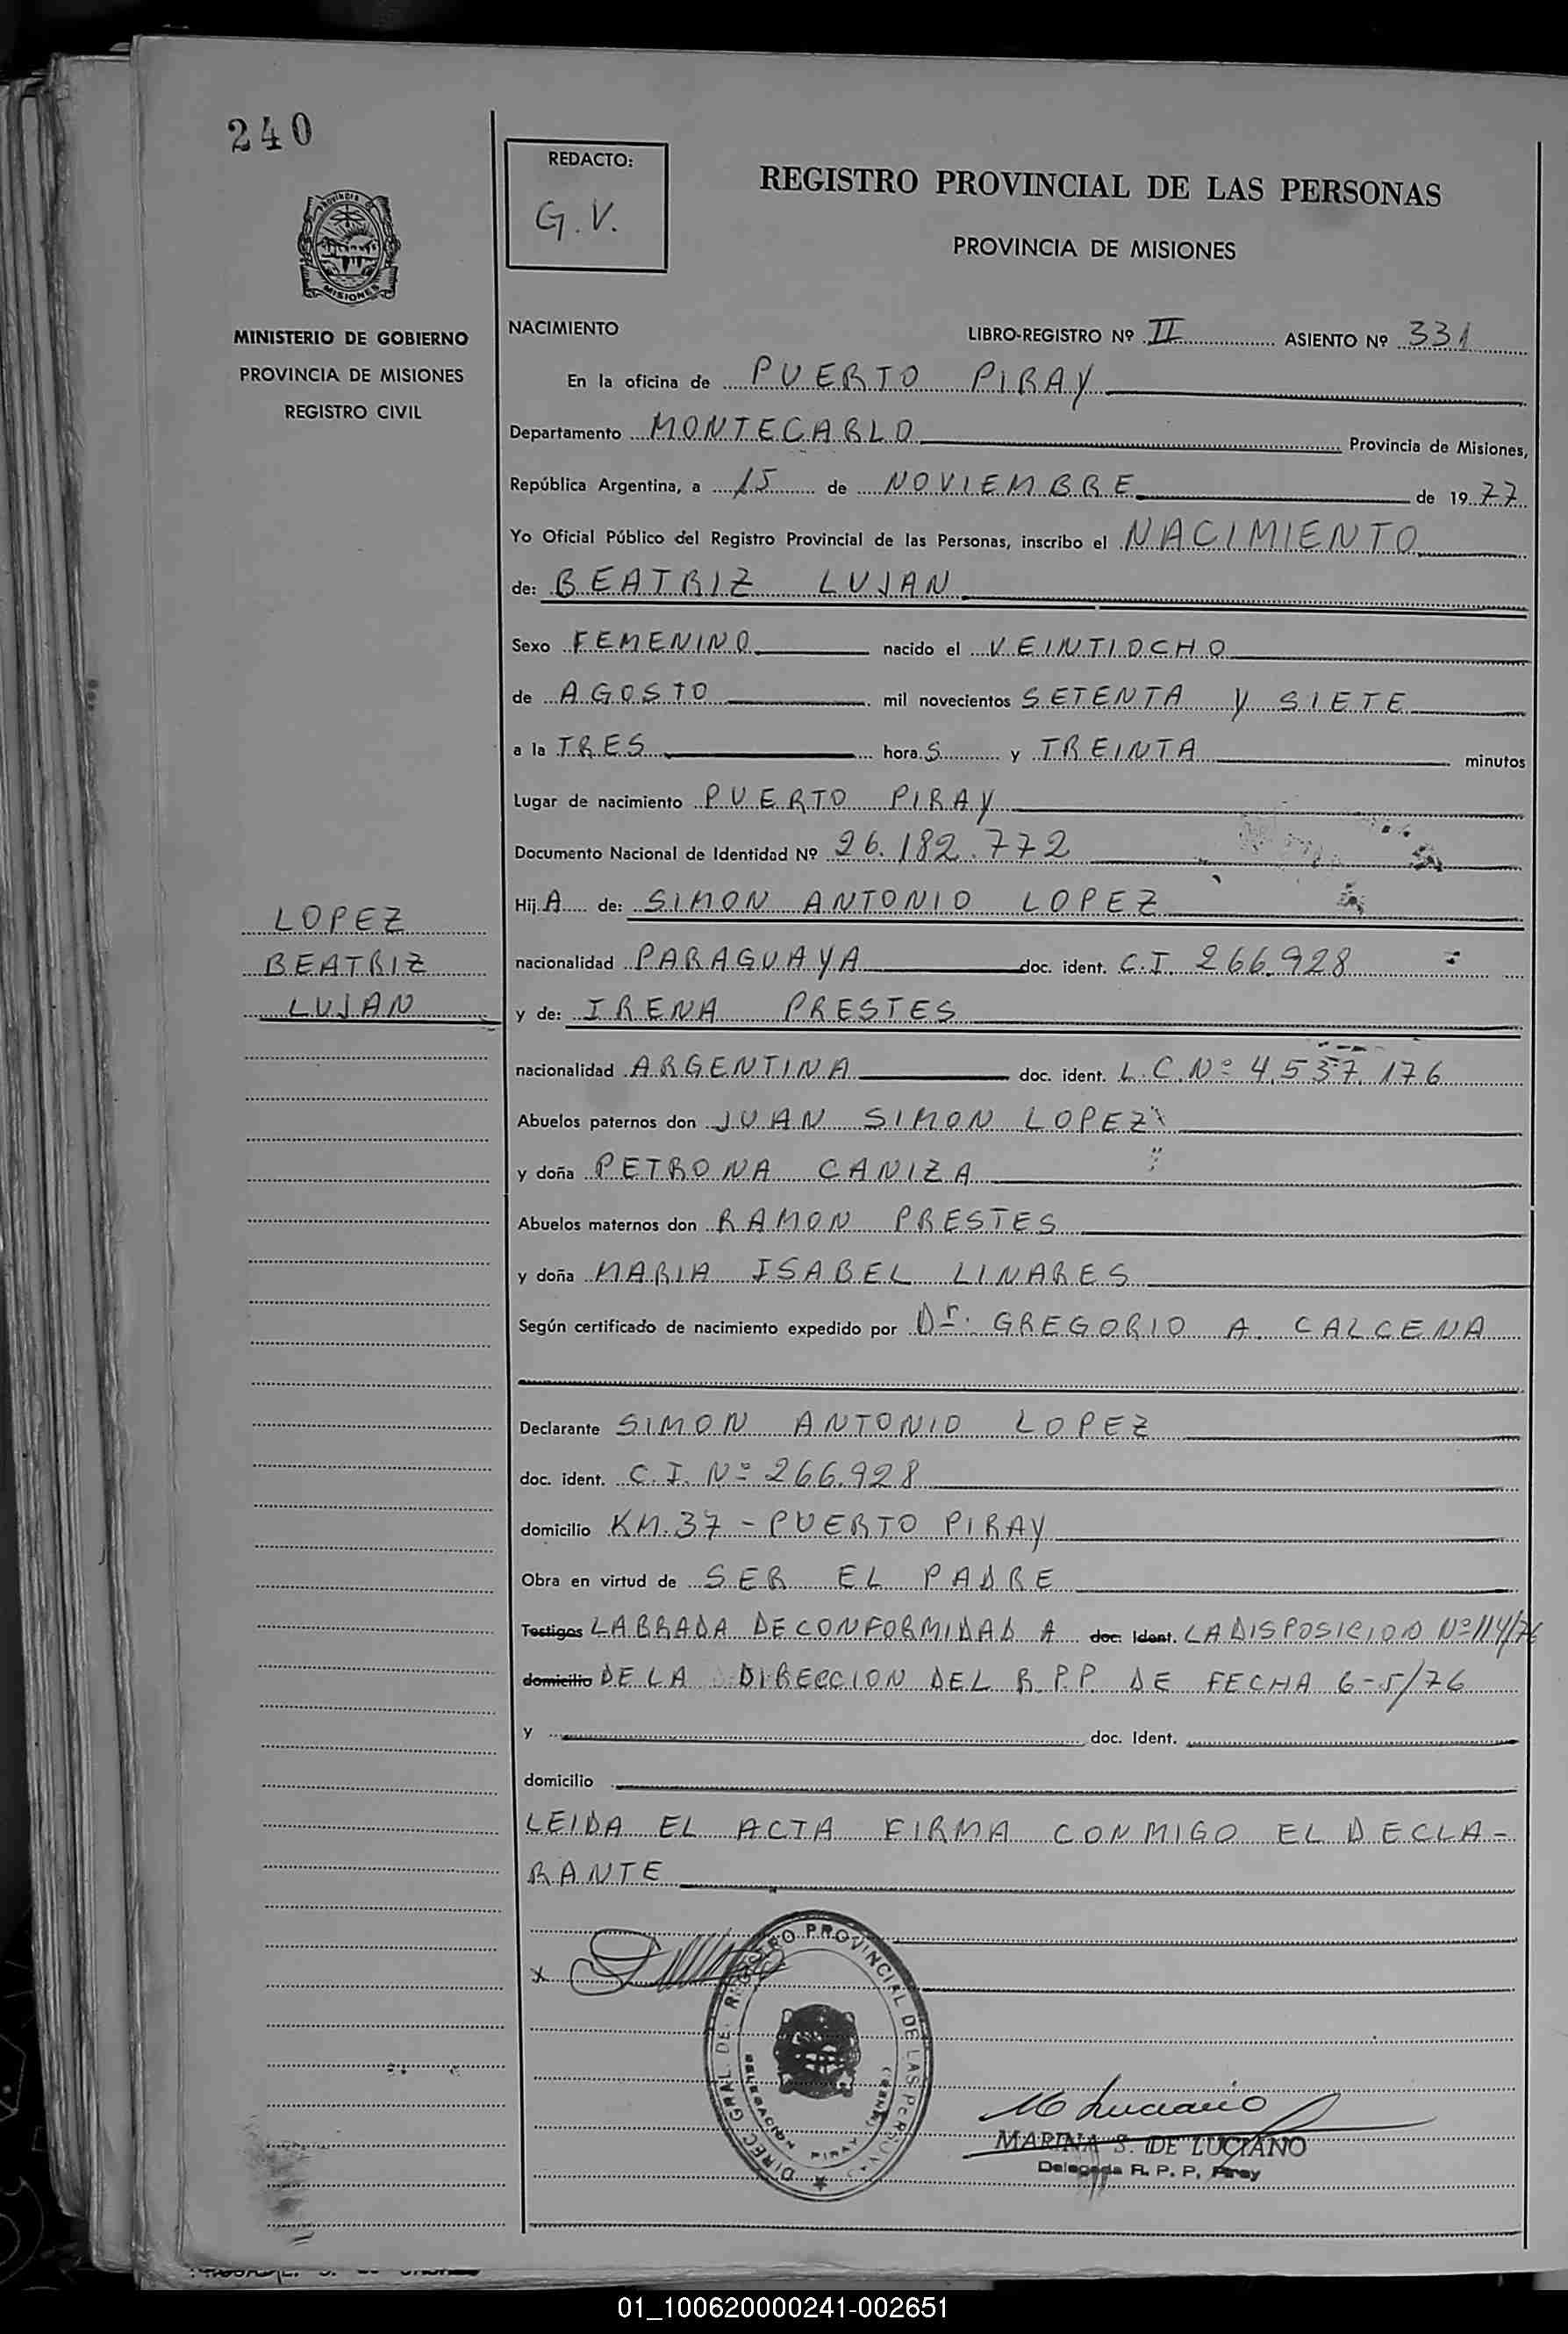 240
REDACTO:
G.V.
REGISTRO PROVINCIAL DE LAS PERSONAS
PROVINCIA DE MISIONES
MISIONES
MINISTERIO DE GOBIERNO
PROVINCIA DE MISIONES
REGISTRO CIVIL
NACIMIENTO LIBRO-REGISTRO Nº II ASIENTO Nº 331
En la oficina de PUERTO PIRAY
Departamento MONTECARLO Provincia de Misiones,
República Argentina, a 15 de NOVIEMBRE de 1977
Yo Oficial Público del Registro Provincial de las Personas, inscribo el NACIMIENTO
de: BEATRIZ LUJAN
Sexo FEMENINO nacido el VEINTIOCHO
de AGOSTO mil novecientos SETENTA Y SIETE
a la TRES hora S y TREINTA minutos
Lugar de nacimiento PUERTO PIRAY
Documento Nacional de Identidad Nº 26.182.772
Hij A de: SIMON ANTONIO LOPEZ
LOPEZ
BEATRIZ
LUJAN
nacionalidad PARAGUAYA doc. ident. C.I. 266.928
y de: IRENA PRESTES
nacionalidad ARGENTINA doc. ident. L.C.Nº 4.537.176
Abuelos paternos don JUAN SIMON LOPEZ
y doña PETRONA CANIZA
Abuelos maternos don RAMON PRESTES
y doña MARIA ISABEL LINARES
Según certificado de nacimiento expedido por Dr. GREGORIO A. CALCENA
Declarante SIMON ANTONIO LOPEZ
doc. ident. C.I. Nº 266.928
domicilio KM.37 - PUERTO PIRAY
Obra en virtud de SER EL PADRE
Testigos LABRADA DE CONFORMIDAD A doc. Ident. LA DISPOSICION Nº 114/76
domicilio DE LA DIRECCION DEL R.P.P. DE FECHA 6-5/76
y doc. Ident.
domicilio
LEIDA EL ACTA FIRMA CONMIGO EL DECLA-
RANTE
x
DIREC. GRAL. DE REGISTRO PROVINCIAL DE LAS PERSONAS
DELEGACION PIRAY
M Luciano
MARINA S. DE LUCIANO
Delegada R. P. P. Piray
01_100620000241-002651